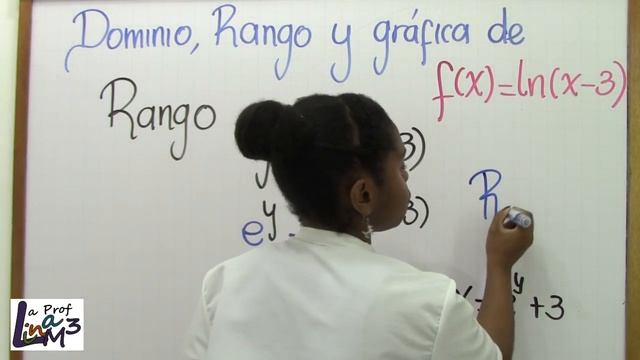 Dominio, Rango y gráfica de
f(x)=ln(x-3)
Rango
y 3)
e^y 3)
R
y +3
a Prof
Lina M3